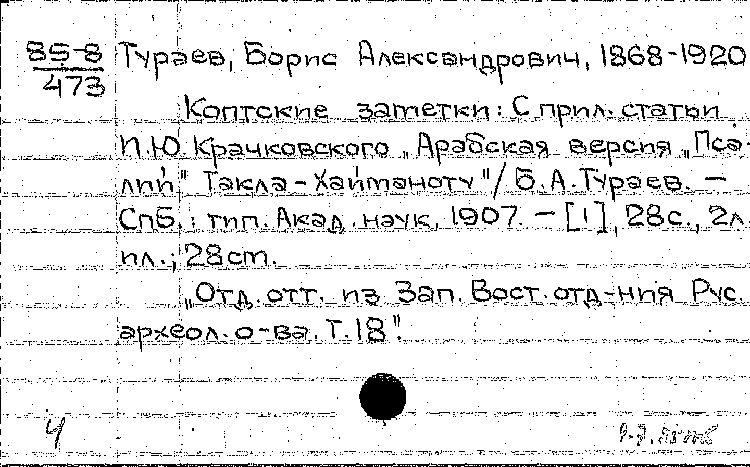 85-8 Тураев, Борис Александрович, 1868-1920
473
Коптские заметки: С прил. статьи
И.Ю. Крачковского „Арабская версия „Пса-
лии" Такла-Хайманоту"/ Б.А. Тураев. —
Спб.: тип. Акад. наук, 1907. — [1], 28с., 2л.
ил.; 28 ст.
„Отд. отт. из Зап. Вост. отд-ния Рус.
археол. о-ва. Т. 18".
4